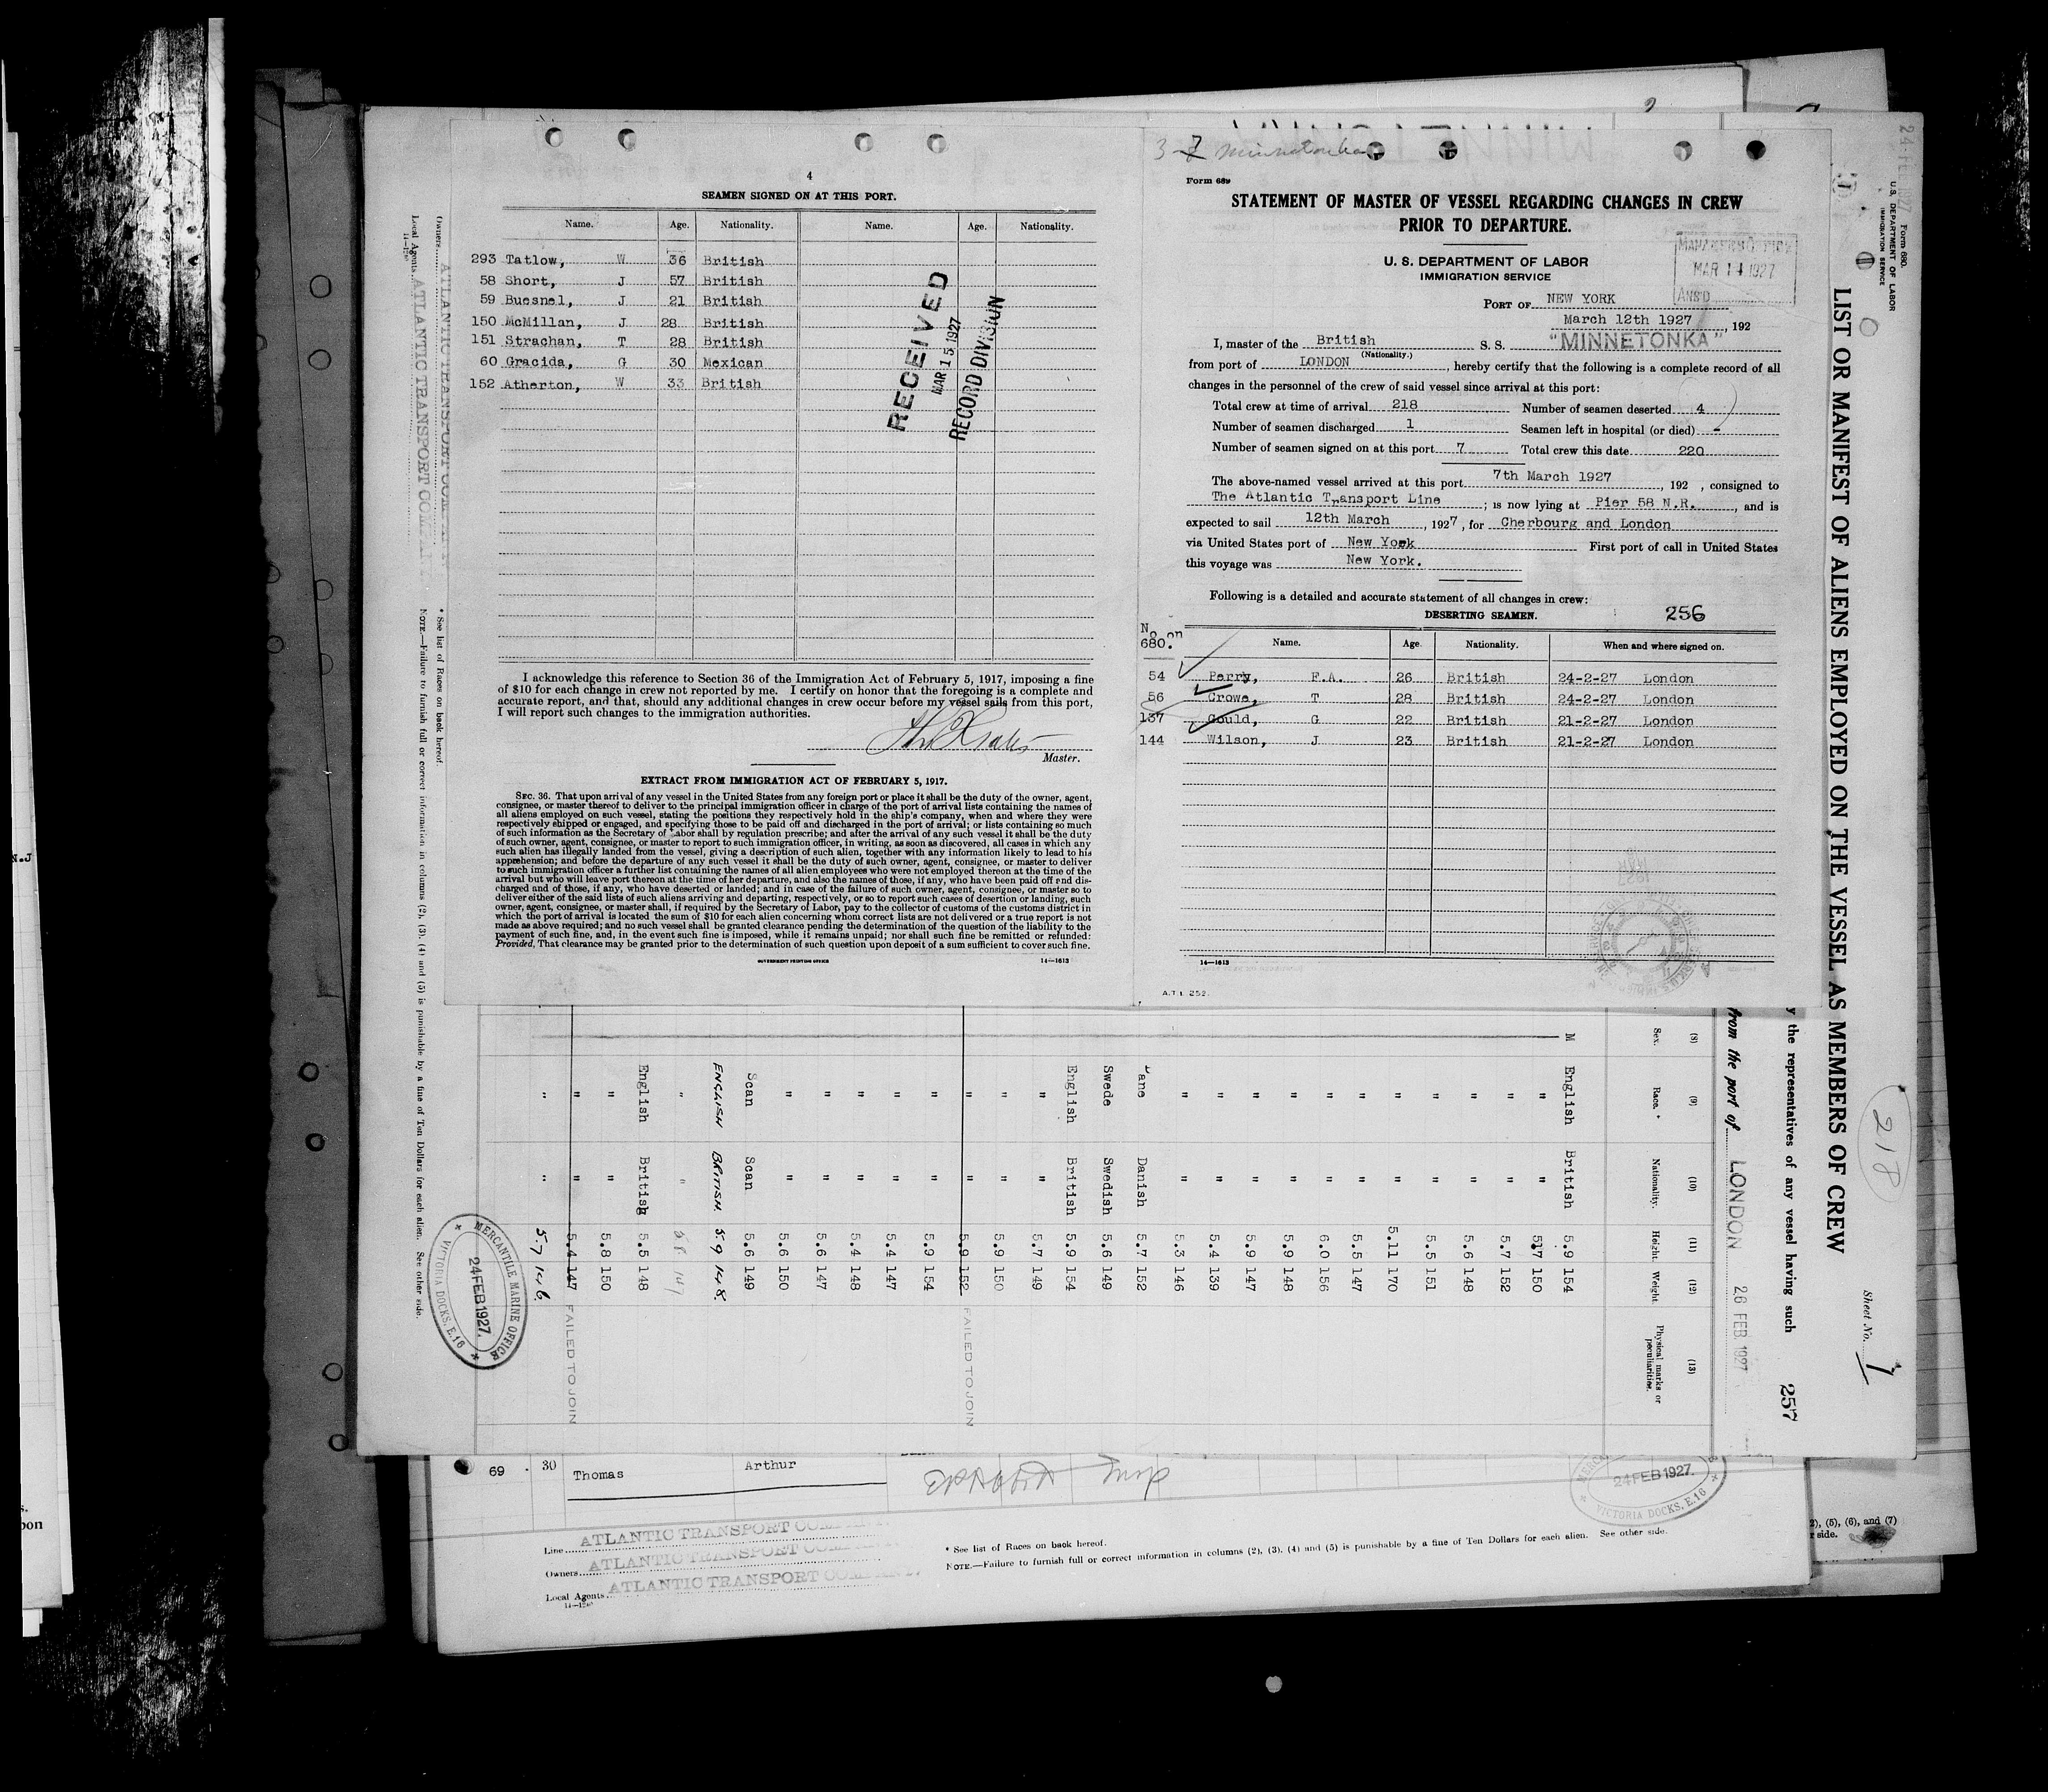 4
SEAMEN SIGNED ON AT THIS PORT.
Name. Age. Nationality. Name. Age. Nationality.
293 Tatlow, W 36 British
58 Short, J 57 British
59 Buesnel, J 21 British
150 McMillan, J 28 British
151 Strachan, T 28 British
60 Gracida, G 30 Mexican
152 Atherton, W 33 British
RECEIVED
MAR 15 1927
RECORD DIVISION
I acknowledge this reference to Section 36 of the Immigration Act of February 5, 1917, imposing a fine
of $10 for each change in crew not reported by me. I certify on honor that the foregoing is a complete and
accurate report, and that, should any additional changes in crew occur before my vessel sails from this port,
I will report such changes to the immigration authorities.
Master.
EXTRACT FROM IMMIGRATION ACT OF FEBRUARY 5, 1917.
SEC. 36. That upon arrival of any vessel in the United States from any foreign port or place it shall be the duty of the owner, agent,
consignee, or master thereof to deliver to the principal immigration officer in charge of the port of arrival lists containing the names of
all aliens employed on such vessel, stating the positions they respectively hold in the ship's company, when and where they were
respectively shipped or engaged, and specifying those to be paid off and discharged in the port of arrival; or lists containing so much
of such information as the Secretary of Labor shall by regulation prescribe; and after the arrival of any such vessel it shall be the duty
of such owner, agent, consignee, or master to report to such immigration officer, in writing, as soon as discovered, all cases in which any
such alien has illegally landed from the vessel, giving a description of such alien, together with any information likely to lead to his
apprehension; and before the departure of any such vessel it shall be the duty of such owner, agent, consignee, or master to deliver
to such immigration officer a further list containing the names of all alien employees who were not employed thereon at the time of the
arrival but who will leave port thereon at the time of her departure, and also the names of those, if any, who have been paid off and dis-
charged and of those, if any, who have deserted or landed; and in case of the failure of such owner, agent, consignee, or master so to
deliver either of the said lists of such aliens arriving and departing, respectively, or so to report such cases of desertion or landing, such
owner, agent, consignee, or master shall, if required by the Secretary of Labor, pay to the collector of customs of the customs district in
which the port of arrival is located the sum of $10 for each alien concerning whom correct lists are not delivered or a true report is not
made as above required; and no such vessel shall be granted clearance pending the determination of the question of the liability to the
payment of such fine, and, in the event such fine is imposed, while it remains unpaid; nor shall such fine be remitted or refunded:
Provided, That clearance may be granted prior to the determination of such question upon deposit of a sum sufficient to cover such fine.
GOVERNMENT PRINTING OFFICE 14—1613
3-7 Minnetonka
Form 689
STATEMENT OF MASTER OF VESSEL REGARDING CHANGES IN CREW
PRIOR TO DEPARTURE.
U. S. DEPARTMENT OF LABOR
IMMIGRATION SERVICE
MAR 14 1927
ANS'D
PORT OF NEW YORK
March 12th 1927, 192
I, master of the British S. S. "MINNETONKA"
(Nationality.)
from port of LONDON, hereby certify that the following is a complete record of all
changes in the personnel of the crew of said vessel since arrival at this port:
Total crew at time of arrival 218 Number of seamen deserted 4
Number of seamen discharged 1 Seamen left in hospital (or died) -
Number of seamen signed on at this port 7 Total crew this date 220
The above-named vessel arrived at this port 7th March 1927, 192 , consigned to
The Atlantic Transport Line ; is now lying at Pier 58 N.R., and is
expected to sail 12th March, 1927, for Cherbourg and London
via United States port of New York First port of call in United States
this voyage was New York.
Following is a detailed and accurate statement of all changes in crew:
DESERTING SEAMEN. 256
No on 680. Name. Age. Nationality. When and where signed on.
54 Perry, F.A. 26 British 24-2-27 London
56 Crowe, T 28 British 24-2-27 London
137 Gould, G 22 British 21-2-27 London
144 Wilson, J 23 British 21-2-27 London
14—1613
A.T.L. 252.
Form 680.
U. S. DEPARTMENT OF LABOR
IMMIGRATION SERVICE
LIST OR MANIFEST OF ALIENS EMPLOYED ON THE VESSEL AS MEMBERS OF CREW
218
Sheet No. 1
y the representatives of any vessel having such 257
from the port of LONDON 26 FEB 1927
(8) (9) (10) (11) (12) (13)
Sex. Race.* Nationality. Height. Weight. Physical marks or peculiarities.
M English British 5.9 154
" " 5.7 150
" " 5.7 152
" " 5.6 148
" " 5.5 151
" " 5.11 170
" " 5.5 147
" " 6.0 156
" " 5.9 148
" " 5.9 147
" " 5.4 139
" " 5.3 146
Dane Danish 5.7 152
Swede Swedish 5.6 149
English British 5.9 154
" " 5.7 149
" " 5.9 150
" " 5.9 152 FAILED TO JOIN
" " 5.9 154
" " 5.4 147
" " 5.4 148
" " 5.6 147
" " 5.6 150
Scan Scan 5.6 149
ENGLISH BRITISH. 5.9 148.
" " 5.8 147
English British 5.5 148
" " 5.8 150
" " 5.4 147 FAILED TO JOIN
" " 5.7 146.
MERCANTILE MARINE OFFICE
24 FEB 1927.
VICTORIA DOCKS, E.16
* See list of Races on back hereof.
NOTE.—Failure to furnish full or correct information in columns (2), (3), (4) and (5) is punishable by a fine of Ten Dollars for each alien. See other side.
Owners ATLANTIC TRANSPORT COMPANY
Local Agents ATLANTIC TRANSPORT COMPANY
69 30 Thomas Arthur
24 FEB 1927.
VICTORIA DOCKS, E.16
Line ATLANTIC TRANSPORT COMPANY
Owners ATLANTIC TRANSPORT COMPANY
Local Agents ATLANTIC TRANSPORT COMPANY
* See list of Races on back hereof.
NOTE.—Failure to furnish full or correct information in columns (2), (3), (4) and (5) is punishable by a fine of Ten Dollars for each alien. See other side.
2), (5), (6), and (7)
r side.